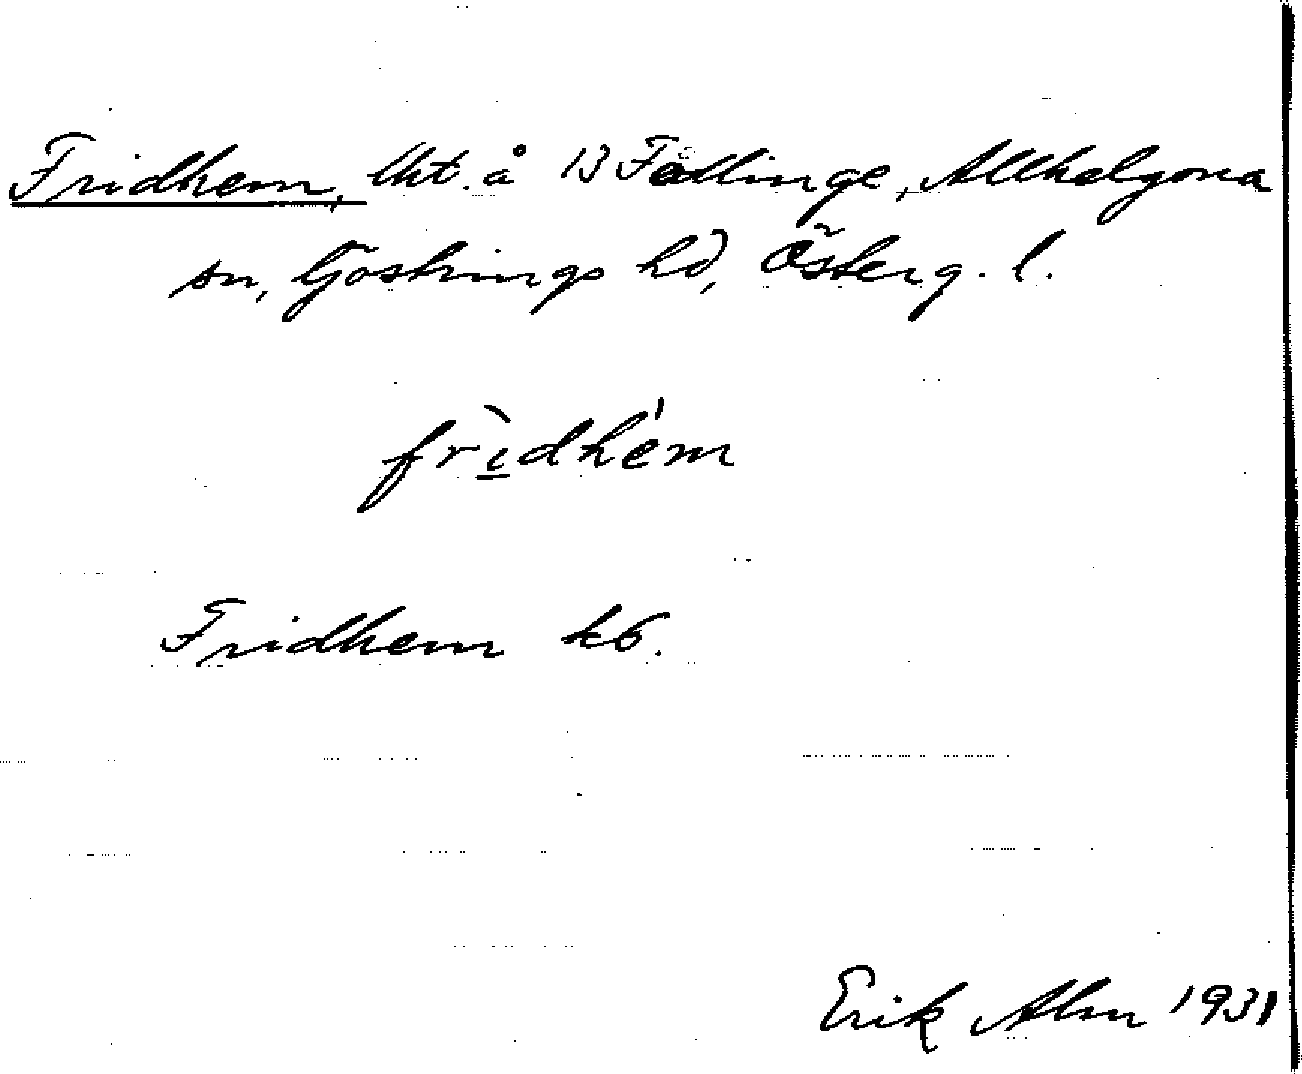 Fridhem, lht. å 13 Fällinge, Allhelgona
sn, Göstrings hd, Österg. l.
frìdhém
Fridhem kb.
Erik Alm 1931